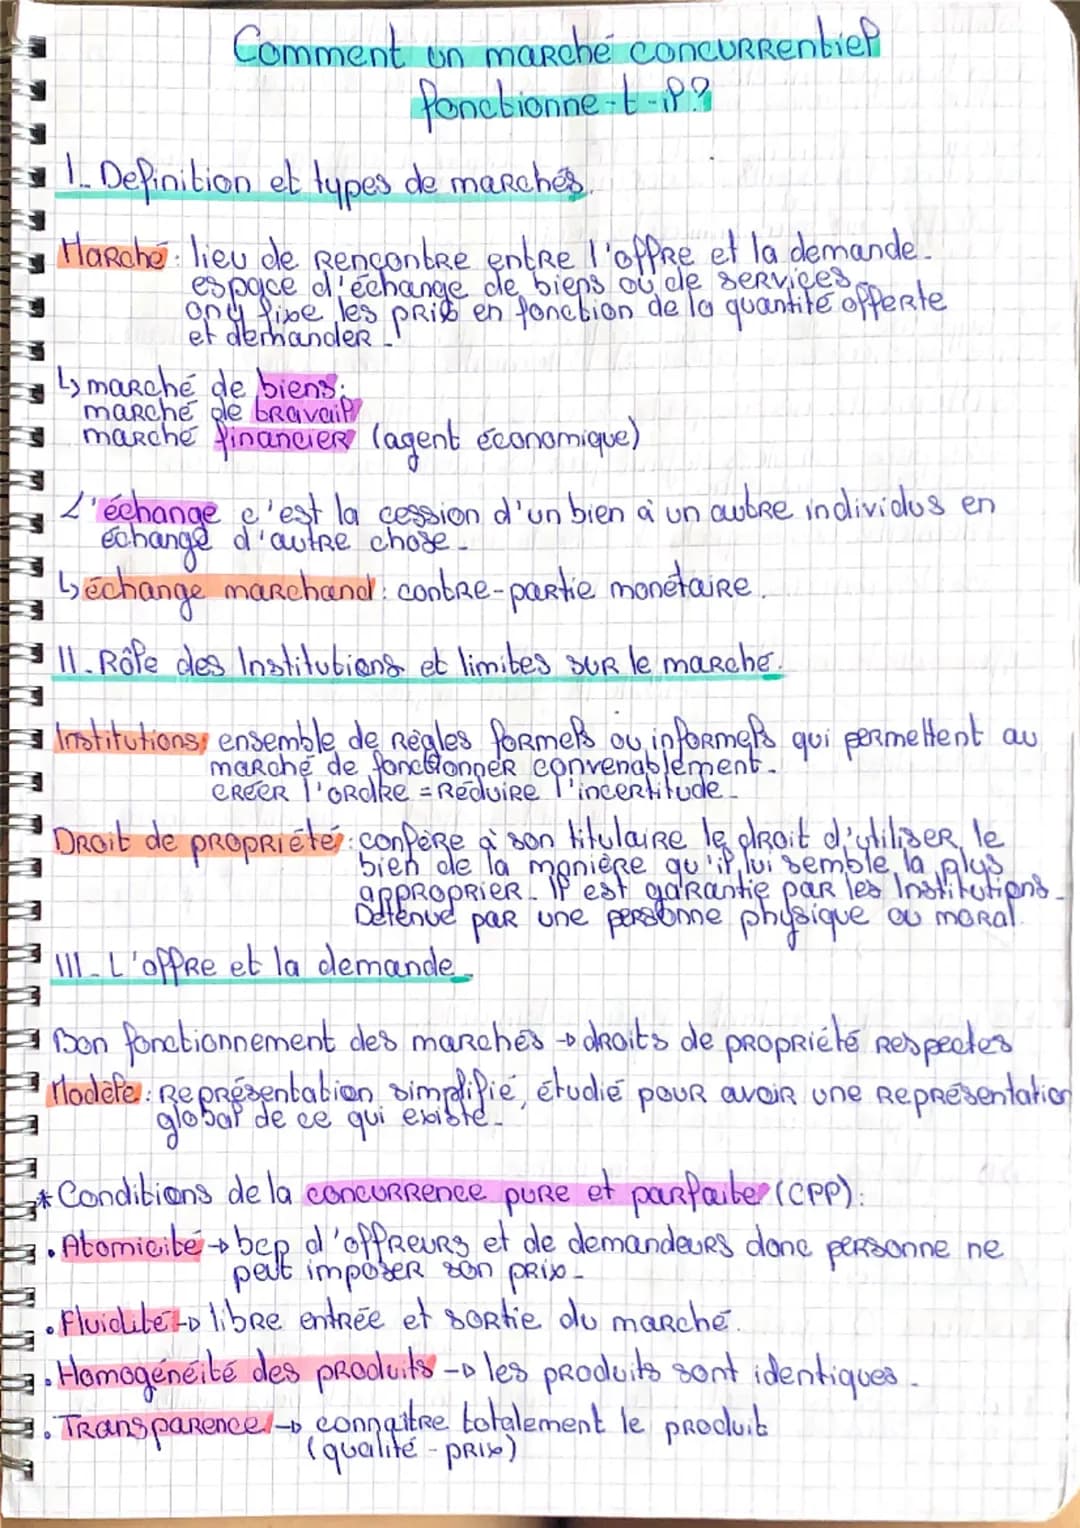 Comment un marché concurrentiel
fonctionne-t-il?
I_ Definition et types de marchés.
Marché: lieu de rencontre entre l'offre et la demande.
espace d'échange de biens ou de services
on y fixe les prix en fonction de la quantité offerte
et demander.
↳ marché de biens:
marché de travail
marché financier (agent économique)
L'échange c'est la cession d'un bien à un autre individus en
échange d'autre chose.
↳ échange marchand: contre-partie monétaire.
II_ Rôle des Institutions et limites sur le marché.
Institutions: ensemble de règles formels ou informels qui permettent au
marché de fonctionner convenablement.
créer l'ordre = Réduire l'incertitude.
Droit de propriété: confère à son titulaire le droit d'utiliser le
bien de la manière qu'il lui semble la plus
approprier. Il est garantie par les Institutions.
Détenue par une personne physique ou moral.
III_ L'offre et la demande.
Bon fonctionnement des marchés → droits de propriété respectés
Modèle: Représentation simplifié, étudié pour avoir une représentation
global de ce qui existe.
* Conditions de la concurrence pure et parfaite (CPP):
• Atomicité → bcp d'offreurs et de demandeurs donc personne ne
peut imposer son prix.
• Fluidité → libre entrée et sortie du marché.
• Homogénéité des produits → les produits sont identiques.
• Transparence → connaître totalement le produit
(qualité - prix)